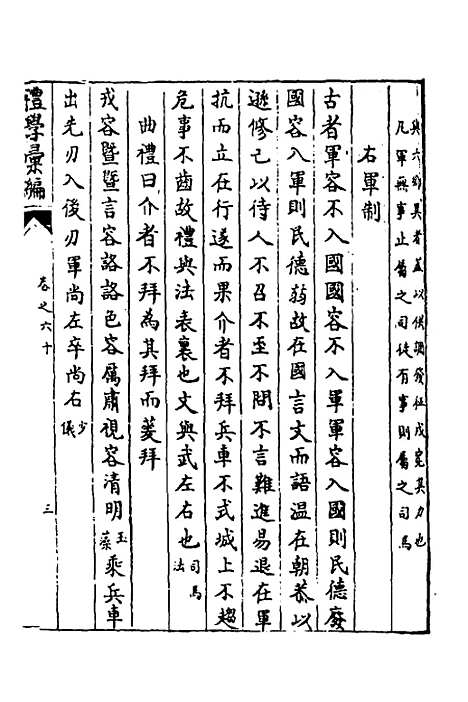 與六鄉異者蓋以供調發征戍寬其力也
凡軍無事止屬之司徒有事則屬之司馬
右軍制
古者軍容不入國國容不入軍軍容入國則民德廢
國容入軍則民德弱故在國言文而語溫在朝恭以
遜修己以待人不召不至不問不言難進易退在軍
抗而立在行遂而果介者不拜兵車不式城上不趨
危事不齒故禮與法表裏也文與武左右也司馬法
曲禮曰介者不拜為其拜而蓌拜
戎容暨暨言容詻詻色容厲肅視容清明玉藻乘兵車
出先刃入後刃軍尚左卒尚右少儀
禮學彙編
卷之六十
三